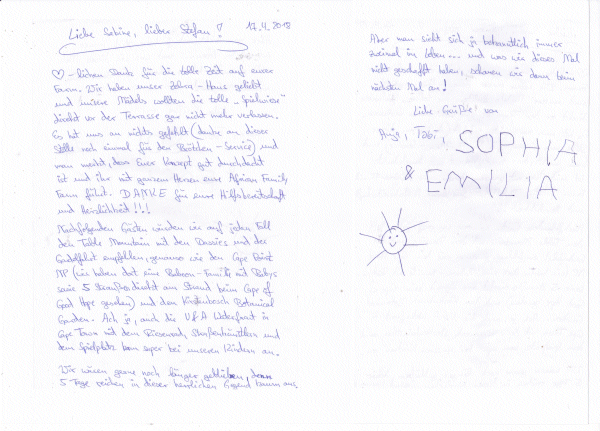 Liebe Sabine, lieber Stefan! 17.4.2018
♡-lichen Dank für die tolle Zeit auf eurer
Farm. Wir haben unser Zebra-Haus geliebt
und unsere Mädels wollten die tolle „Spielwiese"
direkt vor der Terrasse gar nicht mehr verlassen.
Es hat uns an nichts gefehlt (danke an dieser
Stelle noch einmal für den Brötchen-Service) und
man merkt, dass Euer Konzept gut durchdacht
ist und ihr mit ganzem Herzen eure African Family
Farm führt. DANKE für eure Hilfsbereitschaft
und Herzlichkeit!!!
Nachfolgenden Gästen würden wir auf jeden Fall
den Table Mountain mit den Dassies und der
Gondelfahrt empfehlen, genauso wie den Cape Point
NP (wir haben dort eine Baboon-Family mit Babys
sowie 5 Strauße direkt am Strand beim Cape of
Good Hope gesehen) und den Kirstenbosch Botanical
Garden. Ach ja, auch die V&A Waterfront in
Cape Town mit dem Riesenrad, Straßenkünstlern und
dem Spielplatz kam super bei unseren Kindern an.
Wir wären gerne noch länger geblieben, denn
5 Tage reichen in dieser herrlichen Gegend kaum aus.
Aber man sieht sich ja bekanntlich immer
zweimal im Leben... und was wir dieses Mal
nicht geschafft haben, schauen wir dann beim
nächsten Mal an!
Liebe Grüße von
Anja, Tobi, SOPHIA
& EMILIA